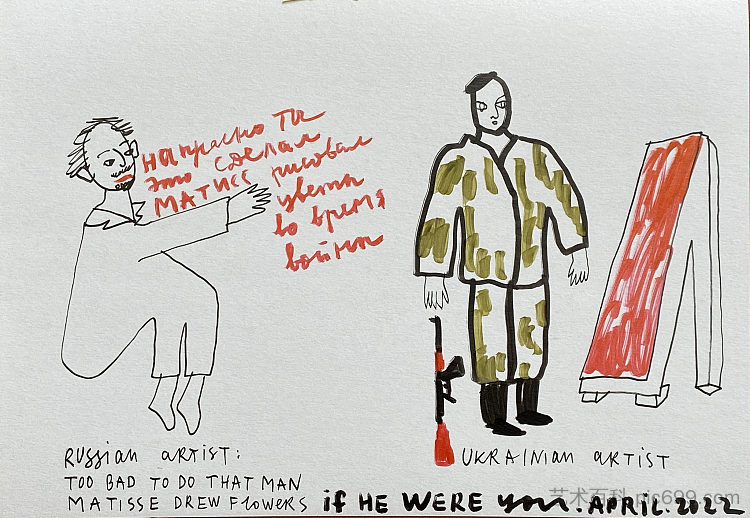 напрасно ты
это сделал
МАТИСС рисовал
цветы
во время
войны
RUSSIAN ARTIST:
TOO BAD TO DO THAT MAN
MATISSE DREW FLOWERS
UKRAINIAN ARTIST
if HE WERE you. APRIL. 2022
艺术百科 pic699.com